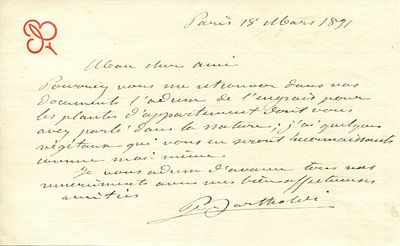 Paris 18 Mars 1891
Mon cher ami
Pourriez vous me retrouver dans vos
documents l'adresse de l'engrais pour
les plantes d'appartement dont vous
avez parlé dans la Nature; j'ai quelques
végétaux qui vous en seront reconnaissants
comme moi même.
Je vous adresse d'avance tous mes
remerciments avec mes bien affectueuses
amitiés
Bartholdi